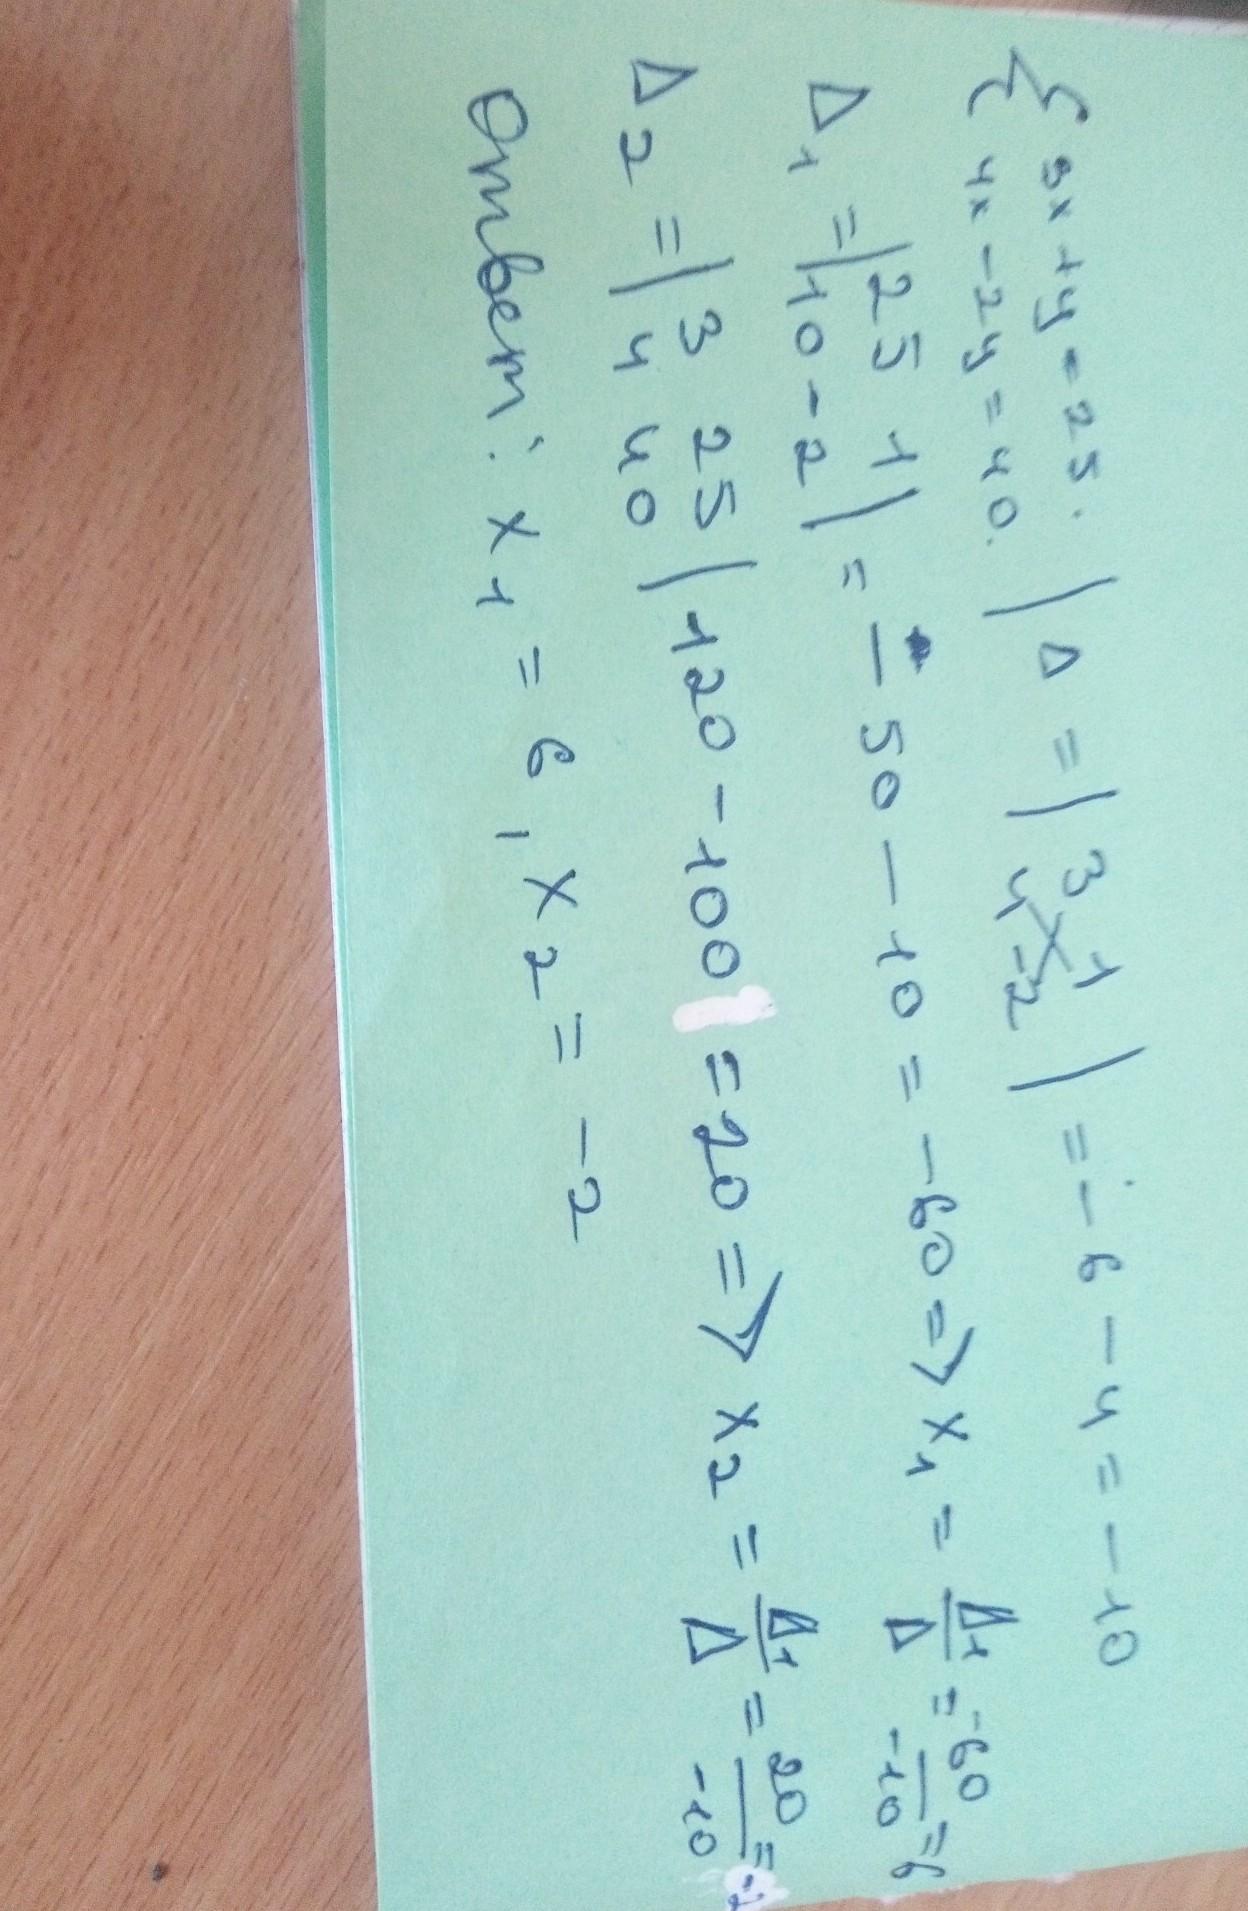 { 3x + y = 25.
4x - 2y = 40. | Δ = | 3 1
4 -2 | = -6 - 4 = -10
Δ1 = | 25 1
10 -2 | = -50 - 10 = -60 => x1 = Δ1/Δ = -60/-10 = 6
Δ2 = | 3 25
4 40 | 120 - 100 = 20 => x2 = Δ1/Δ = 20/-10 = -2
Ответ: x1 = 6, x2 = -2